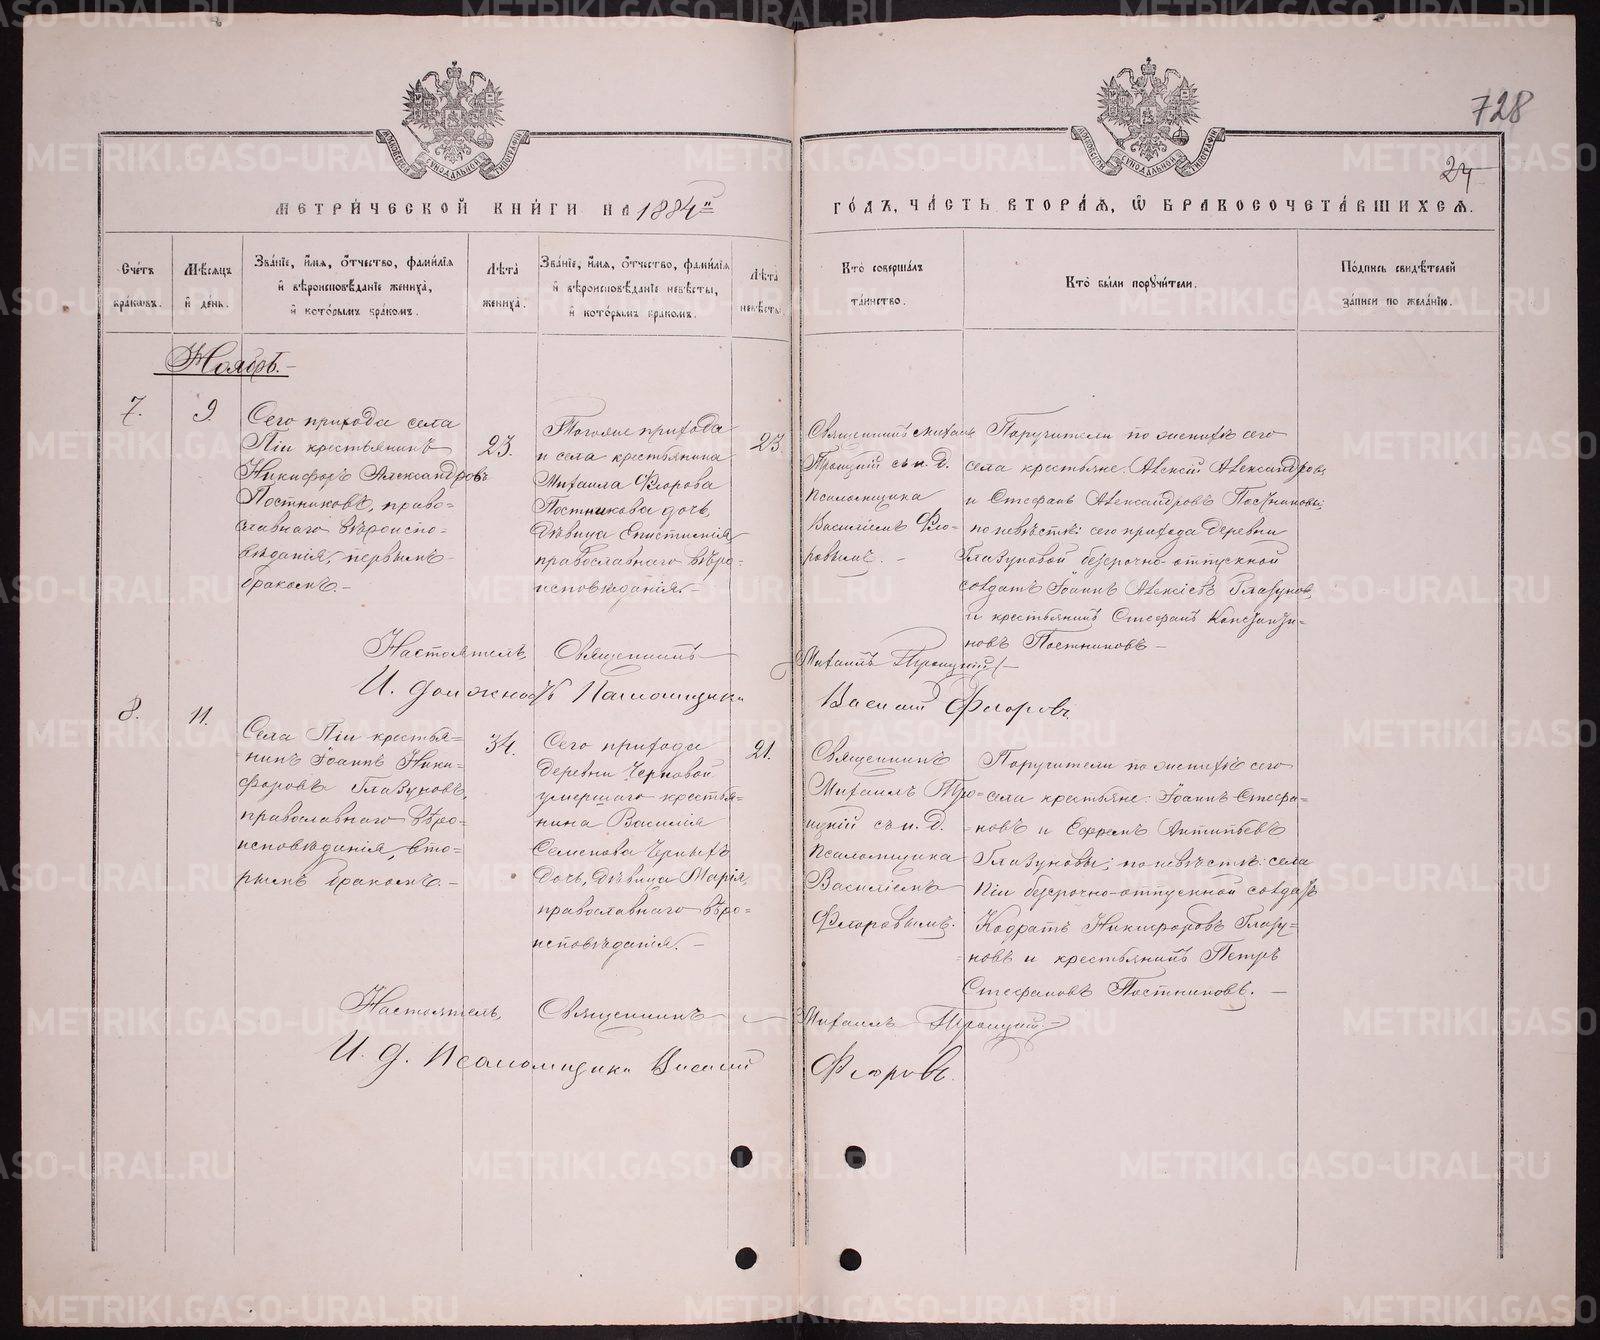 728
24
МЕТРИЧЕСКОЙ КНИГИ НА 1884й
ГОДЪ, ЧАСТЬ ВТОРАЯ, Ѡ БРАКОСОЧЕТАВШИХСЯ.
Счетъ браковъ.
Мѣсяцъ и день.
Званіе, имя, отчество, фамилія и вѣроисповѣданіе жениха, и которымъ бракомъ.
Лѣта жениха.
Званіе, имя, отчество, фамилія и вѣроисповѣданіе невѣсты, и которымъ бракомъ.
Лѣта невѣсты
Кто совершалъ таинство.
Кто были поручители.
Подпись свидѣтелей записи по желанію.
Ноябрь.-
7.
9.
Сего прихода села
Піи крестьянинъ
Никифоръ Александровъ
Постниковъ, право-
славнаго вѣроиспо-
вѣданія, первымъ
бракомъ.-
23.
Тогоже прихода
и села крестьянина
Михаила Флорова
Постникова дочь,
дѣвица Епистимія
православнаго вѣро-
исповѣданія.-
23.
Священникъ Михаилъ
Троицкій съ и. д.
псаломщика
Василіемъ Фло-
ровымъ. -
Поручители по женихѣ сего
села крестьяне: Алексій Александровъ
и Стефанъ Александровъ Постниковы;
по невѣстѣ: сего прихода деревни
Глазуновой безсрочно-отпускной
солдатъ Іоаннъ Алексіевъ Глазуновъ
и крестьянинъ Стефанъ Константи-
новъ Постниковъ -
Настоятель, Священникъ Михаилъ Троицкій
И. должность Псаломщика Василій Флоровъ
8.
11.
Села Піи крестья-
нинъ Іоаннъ Ники-
форовъ Глазуновъ,
православнаго вѣро-
исповѣданія, вто-
рымъ бракомъ. -
34.
Сего прихода
деревни Черновой
умершаго крестья-
нина Василія
Семенова Черныхъ
дочь, дѣвица Марія,
православнаго вѣро-
исповѣданія. -
21.
Священникъ
Михаилъ Тро-
ицкій съ и. д.
псаломщика
Василіемъ
Флоровымъ.
Поручители по женихѣ сего
села крестьяне: Іоаннъ Стефа-
новъ и Ефремъ Антипьевъ
Глазуновы; по невѣстѣ: села
Піи безсрочно-отпускной солдатъ
Кодратъ Никифоровъ Глазу-
новъ и крестьянинъ Петръ
Стефановъ Постниковъ. -
Настоятель, Священникъ Михаилъ Троицкій
И. д. Псаломщика Василій Флоровъ.